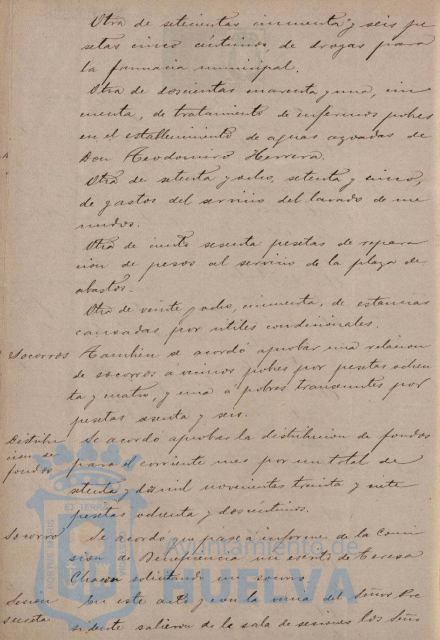 Otra de setecientas cincuenta y seis pe
setas cinco céntimos, de drogas para
la farmacia municipal.
Otra de doscientas cuarenta y una, cin
cuenta, de tratamiento de enfermos pobres
en el establecimiento de aguas azoadas de
Don Teodomiro Herrera.
Otra de setenta y ocho, setenta y cinco,
de gastos del servicio del lavado de me
nudos.
Otra de ciento sesenta pesetas de repara
cion de pesos al servicio de la plaza de
abastos.
Otra de veinte y ocho, cincuenta, de estancias
causadas por útiles condicionales.
Socorros Tambien se acordó aprobar una relacion
de socorros a vecinos pobres por pesetas ochen
ta y cuatro, y una á pobres transeuntes por
pesetas sesenta y seis.
Distribu
cion de
fondos
Se acordó aprobar la distribucion de fondos
para el corriente mes por un total de
setenta y dos mil novecientas treinta y siete
pesetas ochenta y dos céntimos.
Socorro Se acordó un pase á informe de la Comi
sion de Beneficencia un escrito de Teresa
Chacon solicitando un socorro.
Sesion
secreta
En este acto y con la venia del Señor Pre
sidente salieron de la sala de sesiones los Seño
Ayuntamiento de
HUELVA